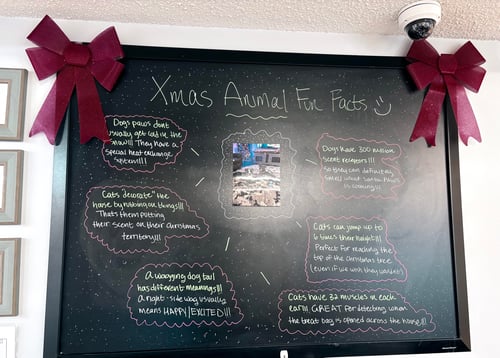 Xmas Animal Fun Facts :)
Dogs paws don't
usually get cold in the
snow!!! They have a
special heat exchange
system!!!
Cats "decorate" the
house by rubbing on things!!!
Thats them putting
their scent on their Christmas
territory!!!
A wagging dog tail
has different meanings!!!
a right-side wag usually
means HAPPY/EXCITED!!!
Dogs have 300 million
scent receptors!!!
so they can definitely
smell when Santa Paws
is coming...
Cats can jump up to
6 times their height!!!
Perfect for reaching
the top of the christmas tree
(even if we wish they wouldn't)
Cats have 32 muscles in each
ear!!! GREAT for detecting when
the treat bag is opened across the house!!!